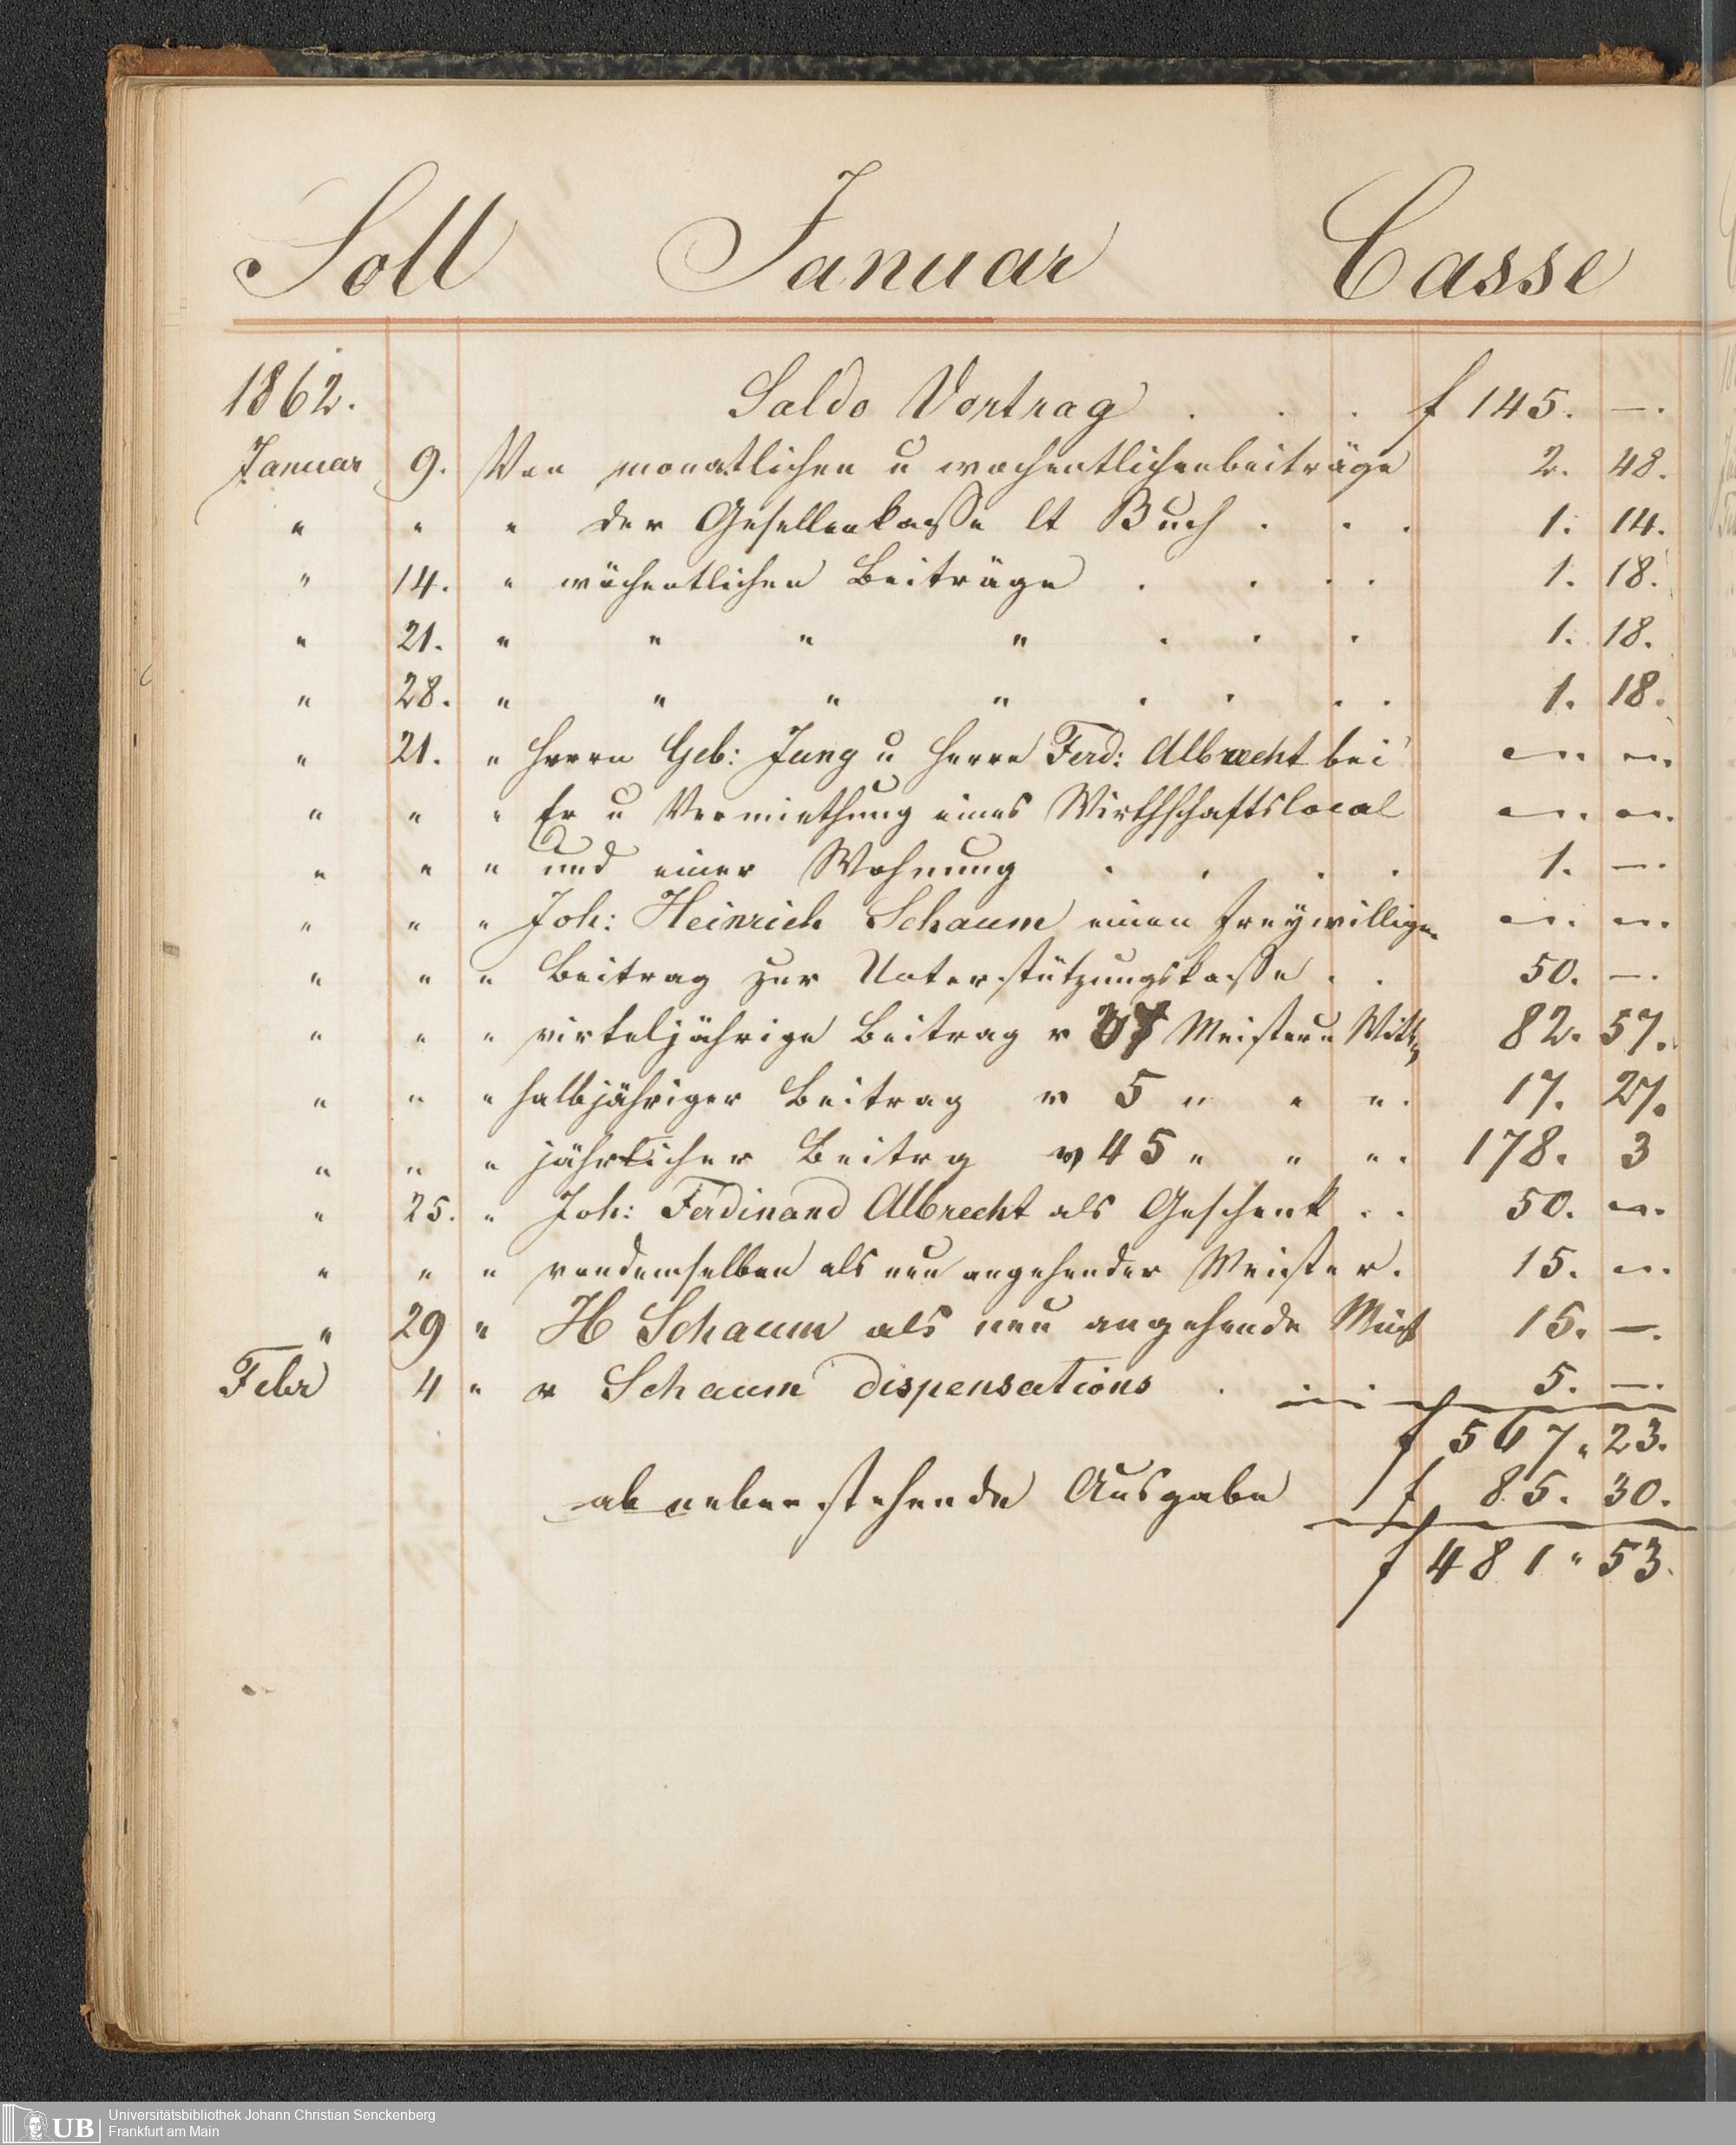 Soll Januar Casse
1862. Saldo Vortrag . . . f 145. —.
Januar 9. Von monatlichen u wochentlichenbeiträge 2. 48.
" " " der Gesellenkasse lt Buch . . . 1. 14.
" 14. " wöchentlichen Beiträge . . . . 1. 18.
" 21. " " " " . . . 1. 18.
" 28. " " " " . . . . 1. 18.
" 21. " Herrn Geb: Jung u Herrn Ferd: Albrecht bei —. —.
" " " Er u Vermiethung eines Wirthschaftslocal —. —.
" " " und einer Wohnung . . . . 1. —.
" " " Joh: Heinrich Schaum einen freywilligen —. —.
" " " Beitrag zur Unterstützungskasse . . 50. —.
" " " virteljährige Beitrag v Meister u Wittw 82. 57.
" " " halbjähriger Beitrag v 5 " " " . 17. 27.
" " " jährlicher Beitrg v 45 " " " . 178. 3
" 25. " Joh: Ferdinand Albrecht als Geschenk . . 50. —.
" " " vondemselben als neu angehender Meister. 15. —.
" 29 " H Schaum als neu angehende Meist 15. —.
Febr 4 " v Schaum dispensations . 5. —.
f 567 " 23.
ab nebenstehende Ausgabe f 85. 30.
f 481 " 53.
UB Universitätsbibliothek Johann Christian Senckenberg
Frankfurt am Main